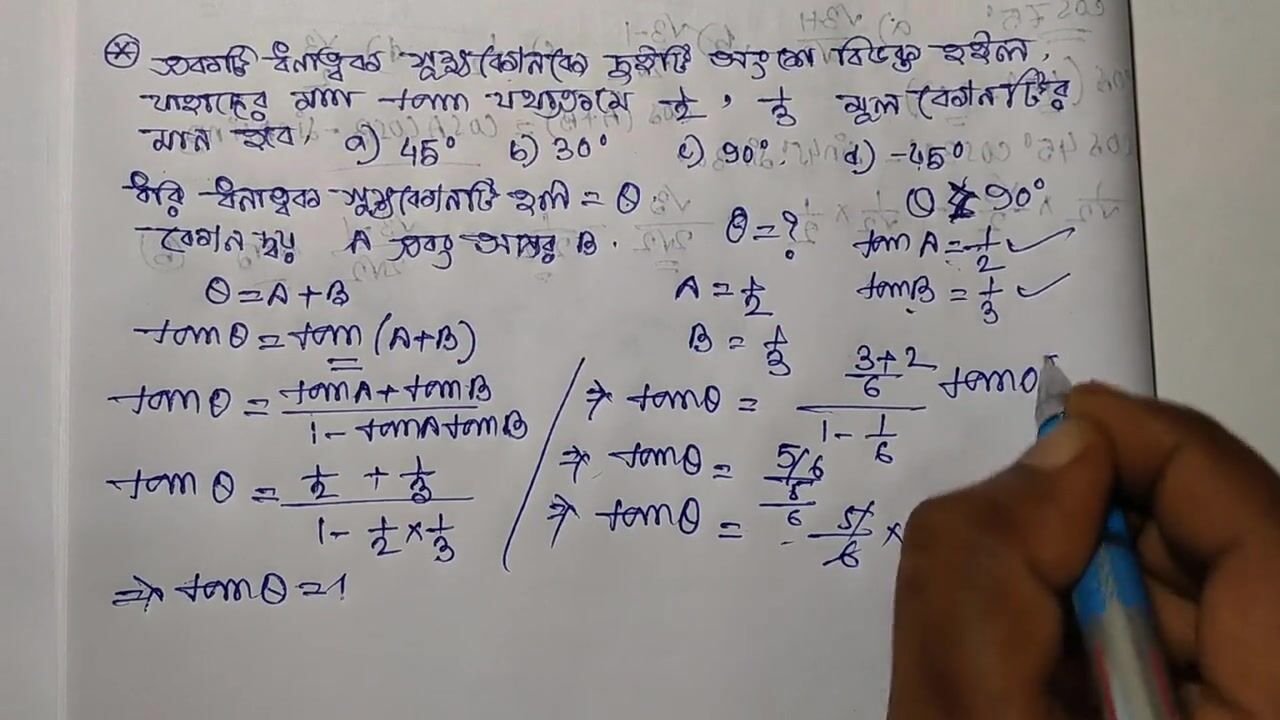 * একটি ধনাত্মক সূক্ষ্মকোণকে দুইটি অংশে বিভক্ত হইল,
যাহাদের মান tan যথাক্রমে 1/2, 1/3 মূল কোণটির
মান হবে, a) 45° b) 30° c) 90° d) -45°
ধরি ধনাত্মক সূক্ষ্মকোণটি হল = θ
θ 90°
কোণ দ্বয় A এবং অপর B.
θ = ?
tan A = 1/2 ✓
θ = A + B
A = 1/2
tan B = 1/3 ✓
tan θ = tan (A+B)
B = 1/3
tan θ = (tan A + tan B) / (1 - tan A tan B)
tan θ = (1/2 + 1/3) / (1 - 1/2 × 1/3)
⇒ tan θ = 1
⇒ tan θ = ((3+2)/6) / (1 - 1/6)
tan θ
⇒ tan θ = (5/6) / (5/6)
⇒ tan θ = 5/6 ×